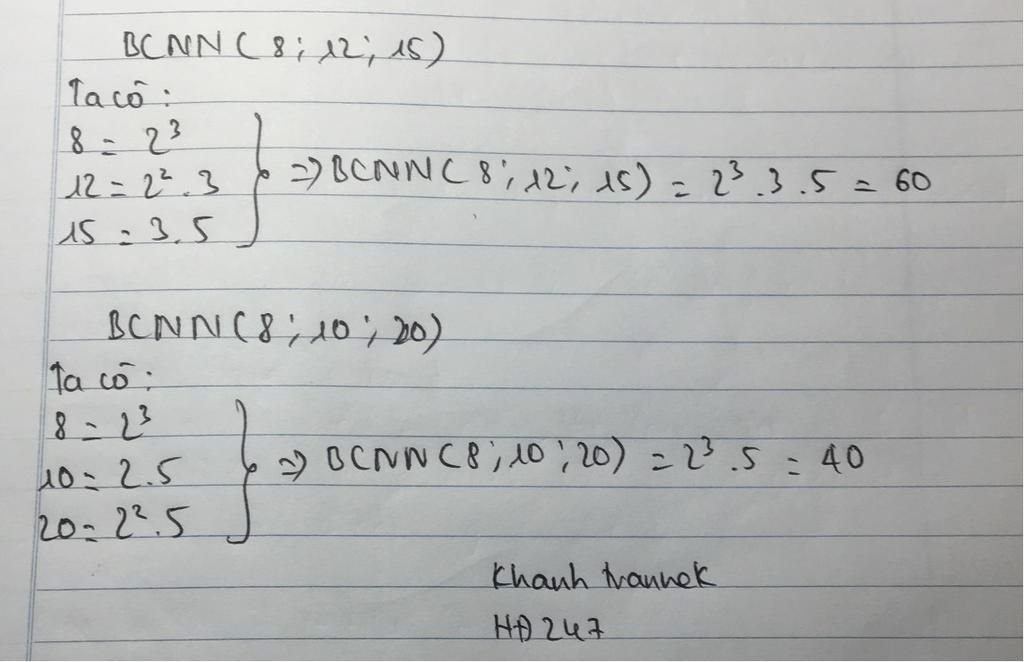 BCNN(8; 12; 15)
Ta có:
8 = 2³
12 = 2².3
15 = 3.5
=> BCNN(8; 12; 15) = 2³.3.5 = 60
BCNN(8; 10; 20)
Ta có:
8 = 2³
10 = 2.5
20 = 2².5
=> BCNN(8; 10; 20) = 2³.5 = 40
Khanh trannek
HĐ 247